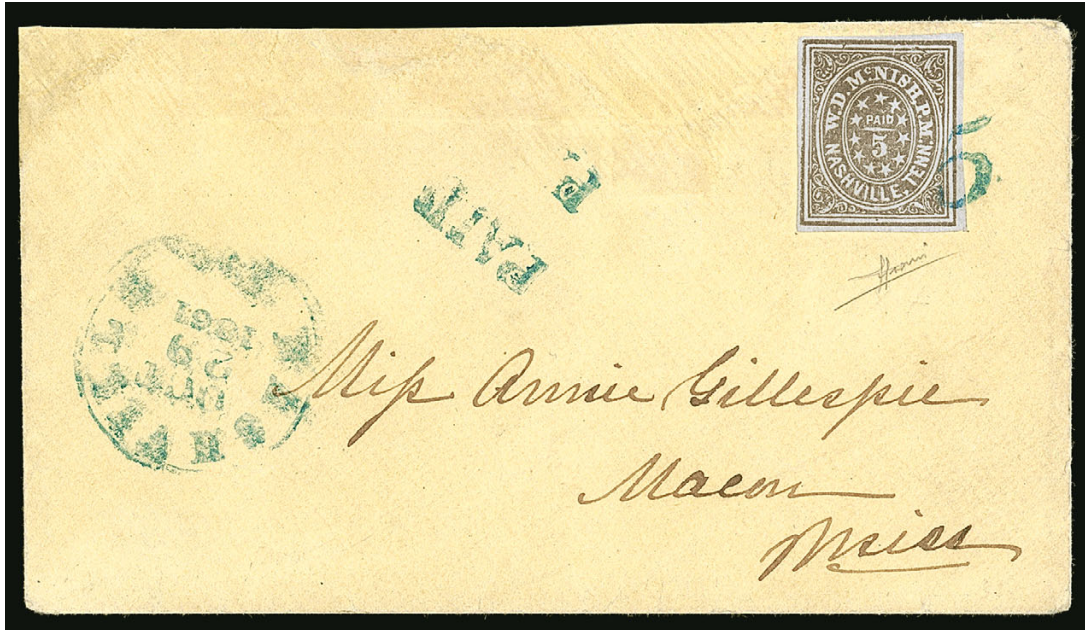 W.D. McNISH. P.M.
NASHVILLE, TENN.
PAID
5
5
PAID
P.
NASHVILLE
1861
Miss Annie Gillespie
Macon
Miss